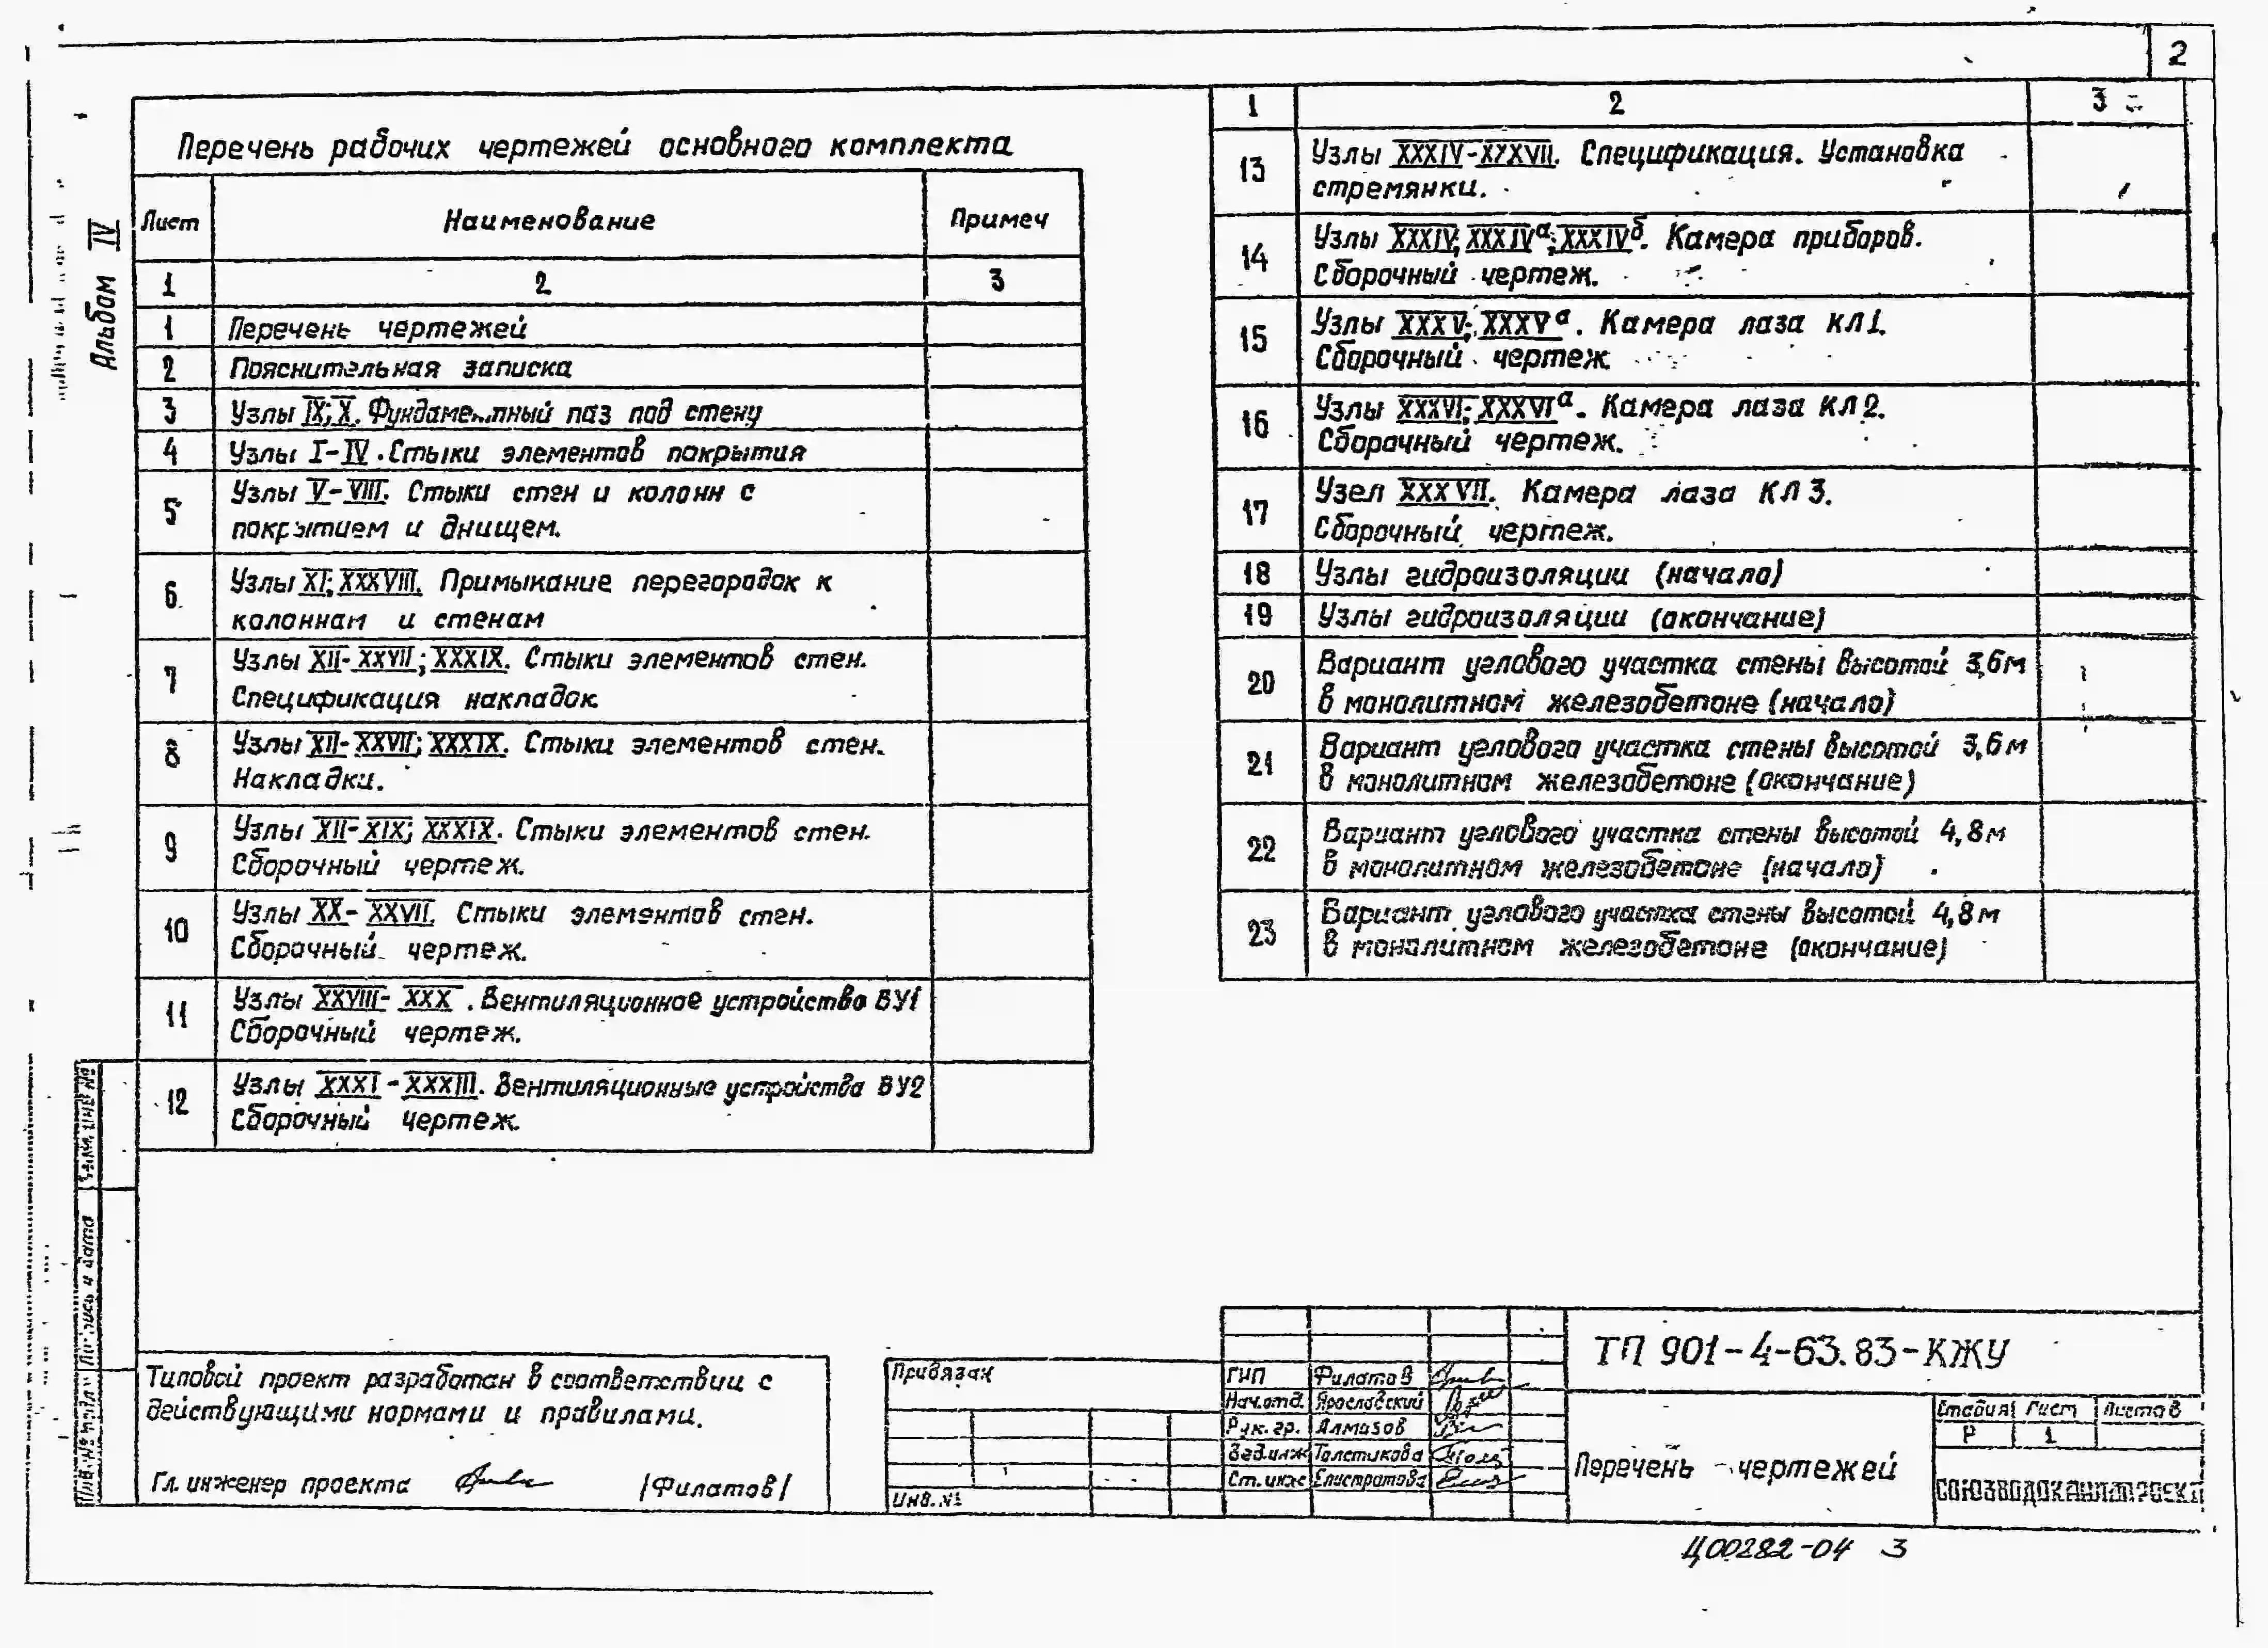 2
Альбом IV
Перечень рабочих чертежей основного комплекта
Лист Наименование Примеч
1 2 3
1 Перечень чертежей
2 Пояснительная записка
3 Узлы IX; X. Фундаментный паз под стену
4 Узлы I-IV. Стыки элементов покрытия
5 Узлы V-VIII. Стыки стен и колонн с
покрытием и днищем.
6 Узлы XI; XXXVIII. Примыкание перегородок к
колоннам и стенам
7 Узлы XII-XXVII; XXXIX. Стыки элементов стен.
Спецификация накладок
8 Узлы XII-XXVII; XXXIX. Стыки элементов стен.
Накладки.
9 Узлы XII-XIX; XXXIX. Стыки элементов стен.
Сборочный чертеж.
10 Узлы XX-XXVII. Стыки элементов стен.
Сборочный чертеж.
11 Узлы XXVIII-XXX. Вентиляционное устройство ВУ1
Сборочный чертеж.
12 Узлы XXXI-XXXIII. Вентиляционные устройства ВУ2
Сборочный чертеж.
1 2 3
13 Узлы XXXIV-XXXVII. Спецификация. Установка
стремянки.
14 Узлы XXXIV; XXXIVа; XXXIVб. Камера приборов.
Сборочный чертеж.
15 Узлы XXXV; XXXVа. Камера лаза КЛ1.
Сборочный чертеж
16 Узлы XXXVI; XXXVIа. Камера лаза КЛ2.
Сборочный чертеж.
17 Узел XXXVII. Камера лаза КЛ3.
Сборочный чертеж.
18 Узлы гидроизоляции (начало)
19 Узлы гидроизоляции (окончание)
20 Вариант углового участка стены высотой 3,6м
в монолитном железобетоне (начало)
21 Вариант углового участка стены высотой 3,6м
в монолитном железобетоне (окончание)
22 Вариант углового участка стены высотой 4,8м
в монолитном железобетоне (начало)
23 Вариант углового участка стены высотой 4,8м
в монолитном железобетоне (окончание)
Взам. инв. №
Подпись и дата
Инв. № подл.
Типовой проект разработан в соответствии с
действующими нормами и правилами.
Гл. инженер проекта /Филатов/
Привязан
Инв. №
ГИП Филатов
Нач. отд. Ярославский
Рук. гр. Алмазов
Вед. инж Толстикова
Ст. инж Елистратова
ТП 901-4-63.83-КЖУ
Перечень чертежей
Стадия Лист Листов
Р 1
СОЮЗВОДОКАНАЛПРОЕКТ
Ц00282-04 3